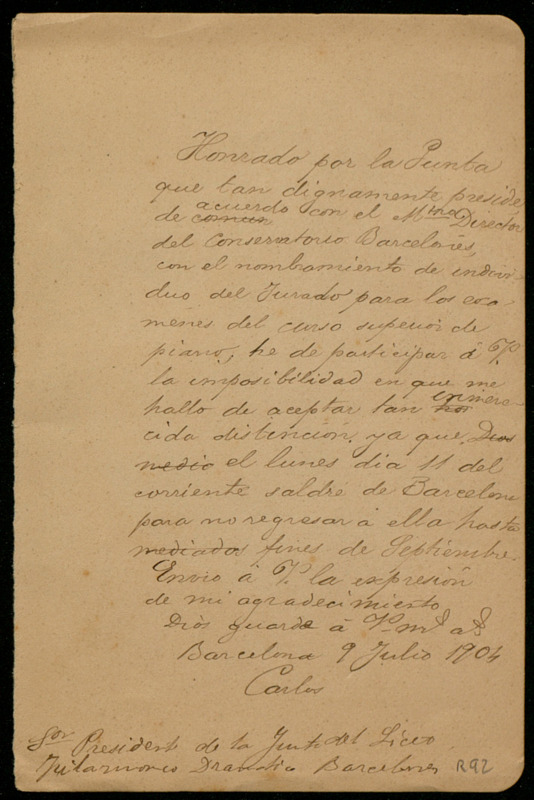 Honrado por la Junta
que tan dignamente preside,
de comun acuerdo con el Mtro. Director
del Conservatorio Barcelonés,
con el nombamiento de indivi-
duo del Jurado para los exa-
menes del curso superior de
piano, he de participar á V.
la imposibilidad en que me
hallo de aceptar tan hon inmere-
cida distinción, ya que Dios
medio el lunes dia 11 del
corriente saldré de Barcelona
para no regresar á ella hasta
mediados fines de Septiembre.
Envio á V. la expresión
de mi agradecimiento
Dios guarde á V. ms. as.
Barcelona 9 Julio 1904
Carlos
Sor President de la Junta del Liceo
Filarmonico Dramatico Barcelones
R92